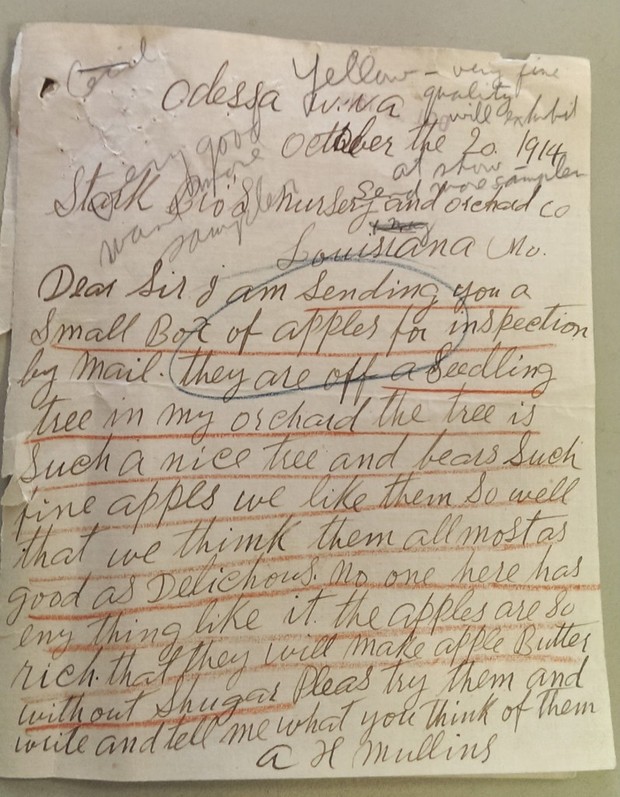 Card
Yellow - very fine
quality
will exhibit
at show
Send more samples
very good
want more
samples
Odessa W.Va
October the 20. 1914
Stark Bro's nursery and orchard co
Louisiana Mo.
Dear Sir I am sending you a
Small Box of apples for inspection
by mail. they are off a Seedling
tree in my orchard the tree is
Such a nice tree and bears Such
fine appls we like them So well
that we thimk them all most as
good as Delichous. no one here has
eny thing like it. the apples are so
rich. that they will make apple Butter
without Shugar Pleas try them and
write and tell me what you think of them
A H Mullins